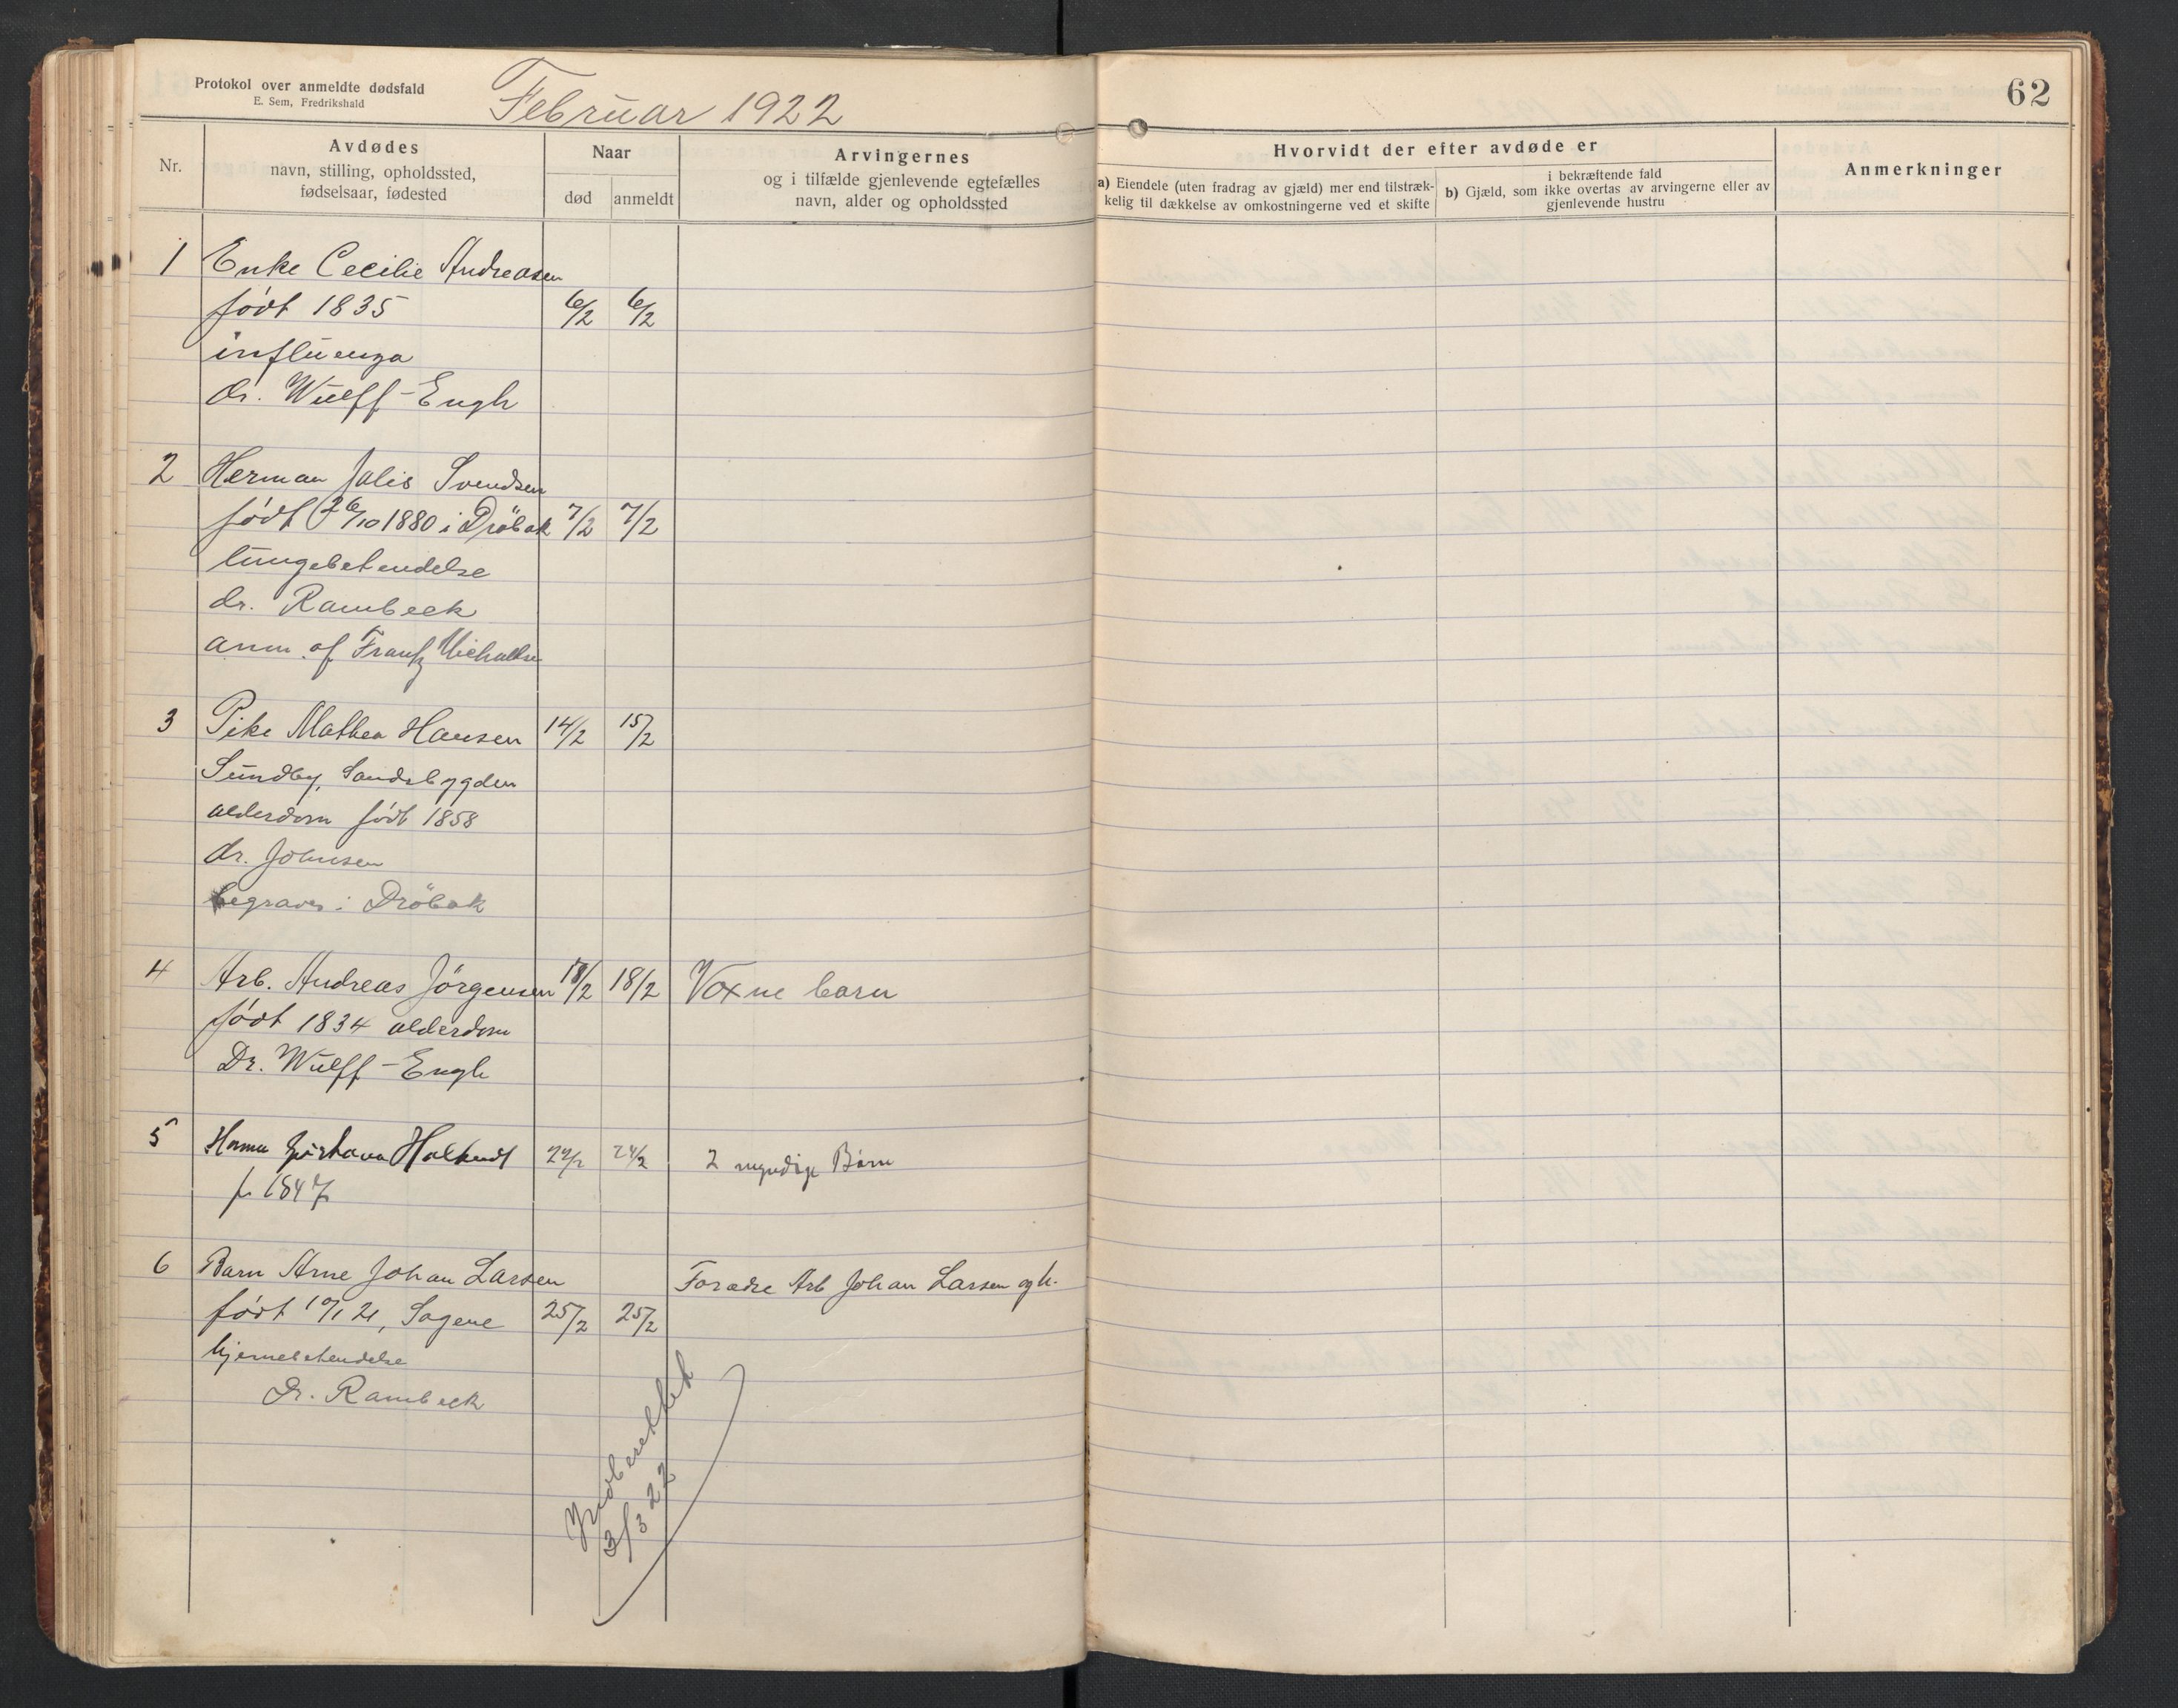 Protokol over anmeldte dødsfald
E. Sem, Fredrikshald
Februar 1922
62
Nr.
Avdødes
navn, stilling, opholdssted,
fødselsaar, fødested
Naar
død
anmeldt
Arvingernes
og i tilfælde gjenlevende egtefælles
navn, alder og opholdssted
Hvorvidt der efter avdøde er
a) Eiendele (uten fradrag av gjæld) mer end tilstræk-
kelig til dækkelse av omkostningerne ved et skifte
i bekræftende fald
b) Gjæld, som ikke overtas av arvingerne eller av
gjenlevende hustru
Anmerkninger
1 Enke Cecilie Andreasen
født 1835 6/2 6/2
influenza
dr. Wulff-Engh
2 Herman Jalis Svendsen
født 26/10 1880 i Drøbak 7/2 7/2
lungebetendelse
dr. Rambeck
anm. af Frantz
3 Pike Mathea Hansen 14/2 15/2
Sundby, Sandsbygden
alderdom født 1858
dr. Johnsen
begraves i Drøbak
4 Arb. Andreas Jørgensen 18/2 18/2 Voxne barn
født 1834 alderdom
Dr. Wulff-Engh
5 24/2 2 myndige Børn
f. 1847
6 Barn Arne Johan Larsen Forædre Arb Johan Larsen og h.
født 10/1 21, Sagene 25/2 25/2
hjernebetendelse
Dr. Rambeck
Indberettet
3/3 22